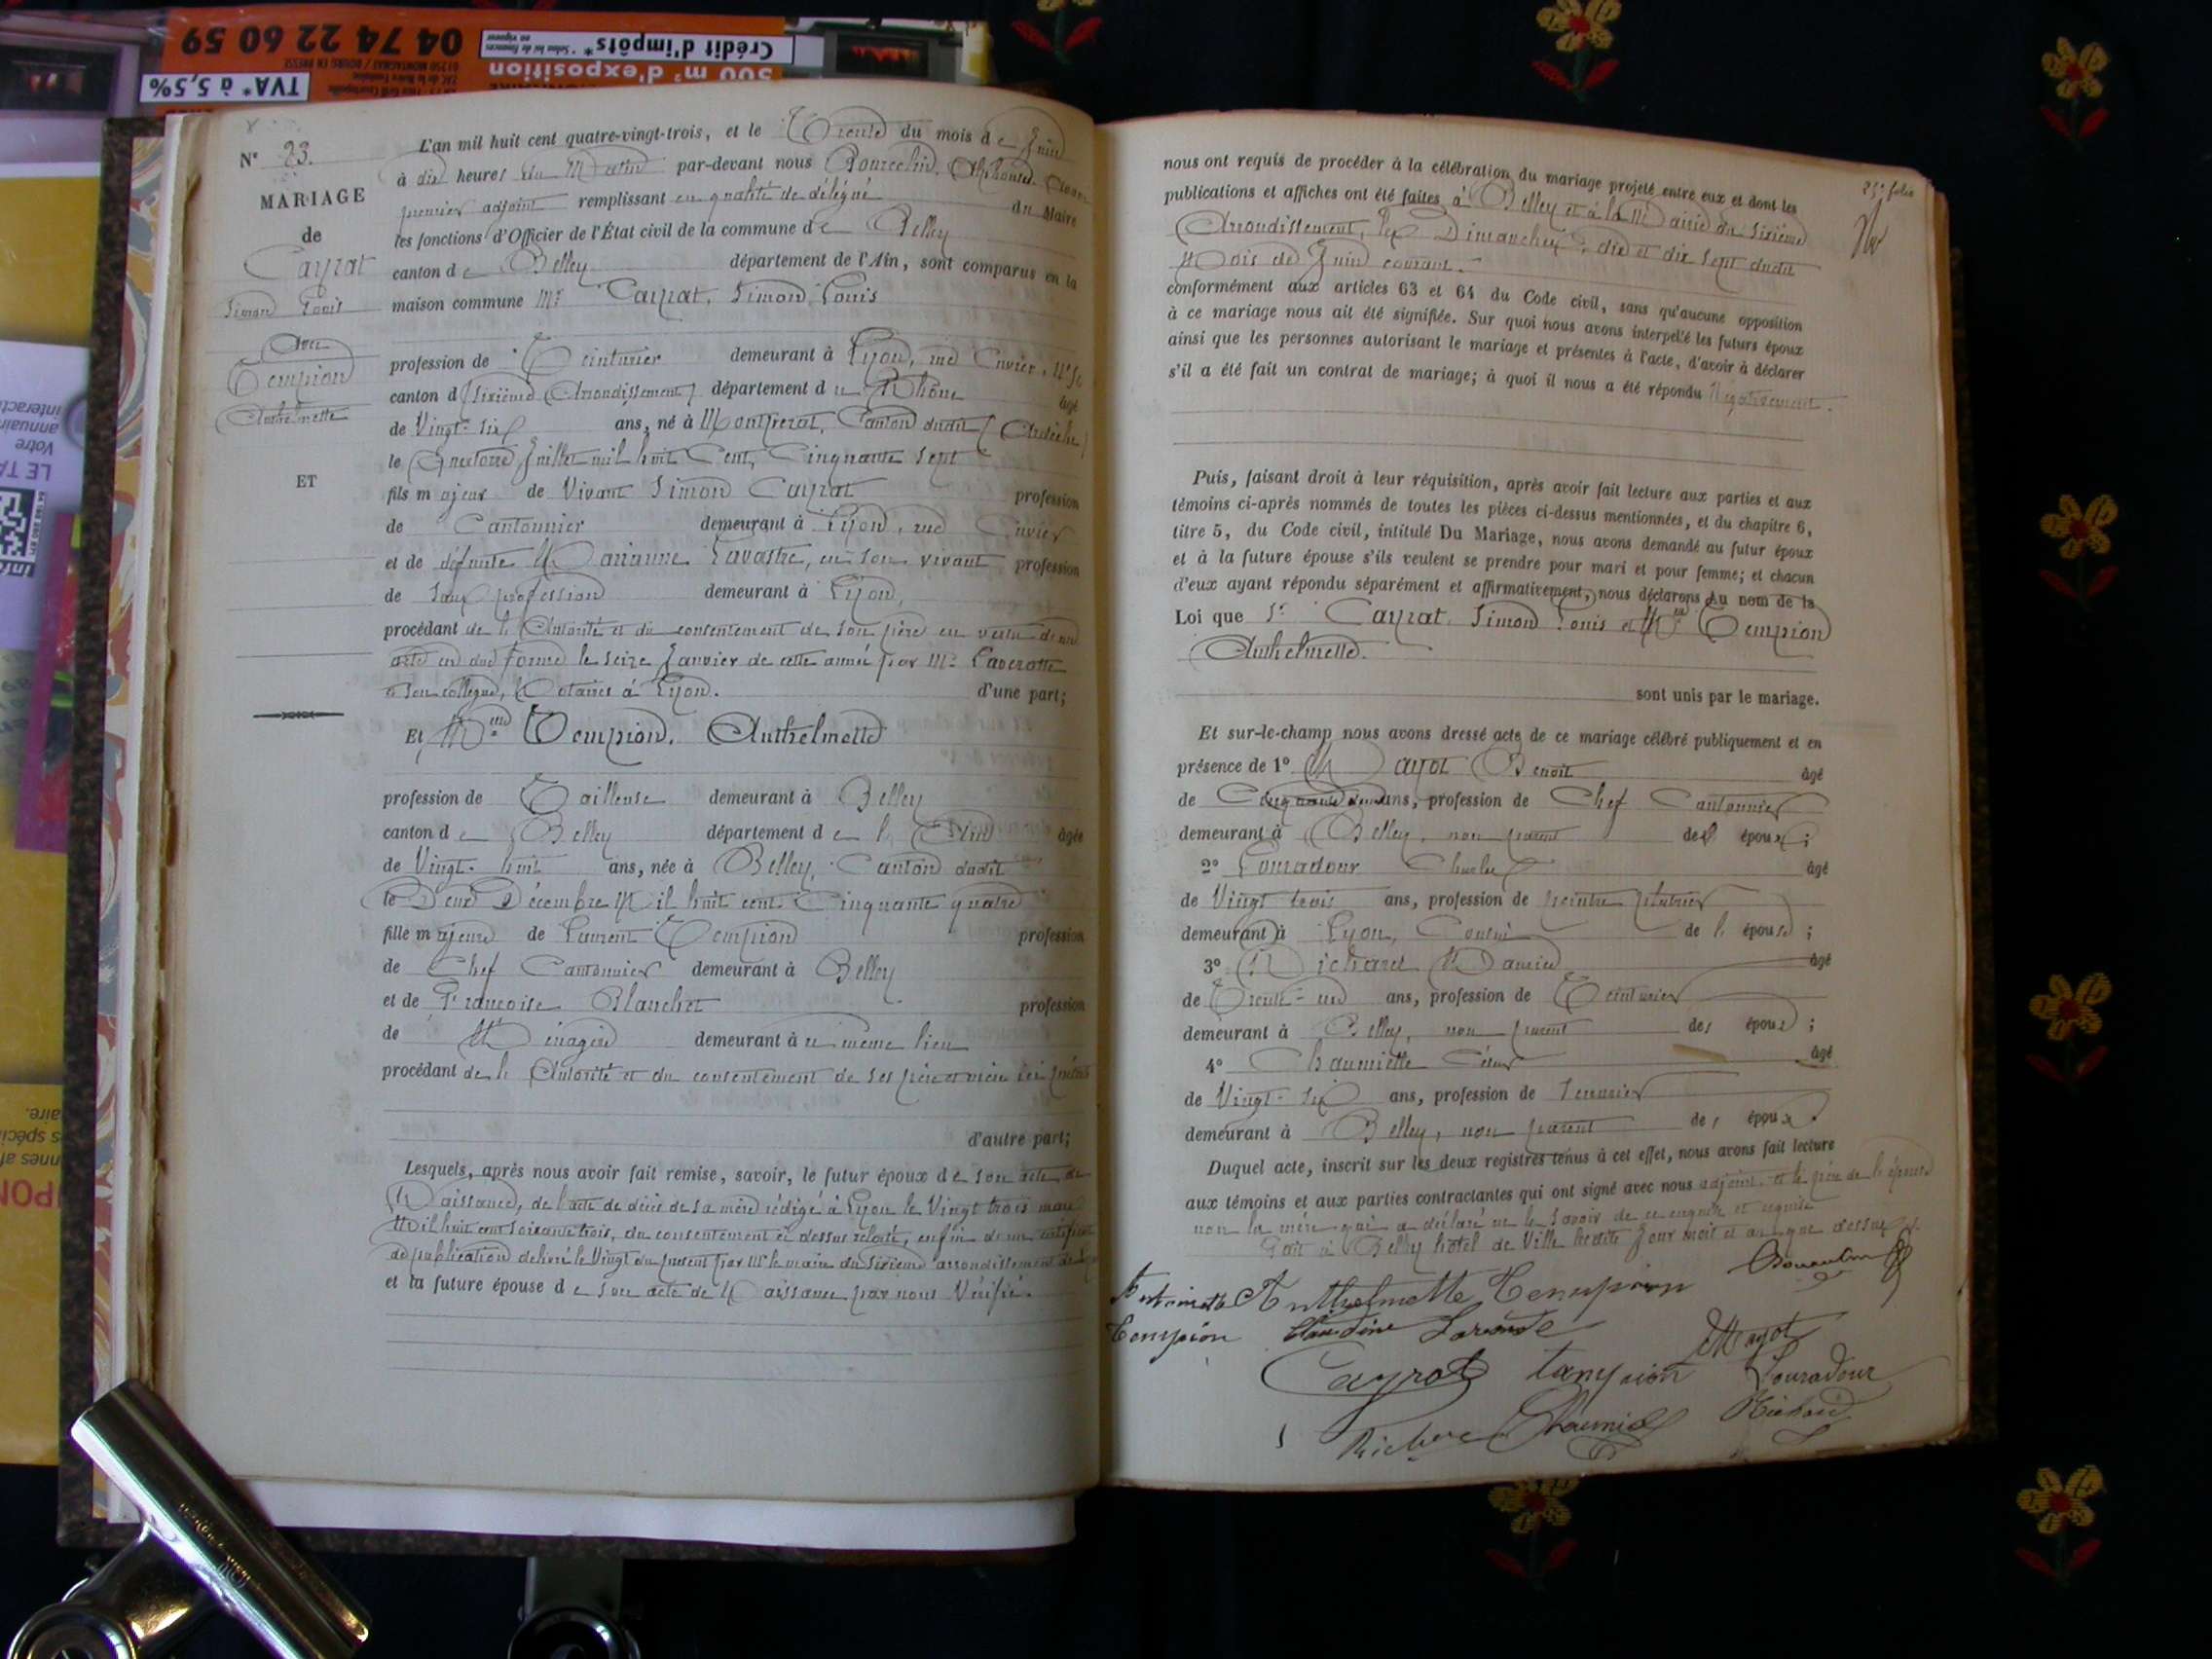 04 74 22 60 59
Crédit d'impôts*
* Selon loi de finances
en vigueur
500 m² d'exposition
TVA* à 5,5%
N° 23.
MARIAGE
de
Cayrat
Simon Louis
Avec
Tempion
Anthelmette
ET
L'an mil huit cent quatre-vingt-trois, et le Trente du mois de Juin
à dix heures du Matin par-devant nous
premier adjoint remplissant en qualité de délégué du Maire
les fonctions d'Officier de l'État civil de la commune de Belley
canton de Belley département de l'Ain, sont comparus en la
maison commune Mr Cayrat, Simon Louis
profession de Teinturier demeurant à Lyon, rue Cuvier, N°
canton d (Sixième Arrondissement) département du Rhône âgé
de Vingt-six ans, né à Montpezat, Canton dudit (Ardèche)
le Quatorze Juillet mil huit Cent, Cinquante Sept
fils majeur de Vivant Simon Cayrat profession
de Cantonnier demeurant à Lyon, rue Cuvier
et de défunte Marianne Lavastre, en son vivant profession
de Sans profession demeurant à Lyon,
procédant de l'Autorité et du consentement de son père en vertu d'un
acte en due forme le seize Janvier de cette année par Me Laverotte
et son collègue, Notaires à Lyon. d'une part;
Et Melle Tempion, Anthelmette
profession de Tailleuse demeurant à Belley
canton de Belley département de l'Ain âgée
de Vingt-huit ans, née à Belley, Canton dudit
le Deux Décembre Mil huit cent Cinquante quatre
fille majeure de Laurent Tempion profession
de Chef Cantonnier demeurant à Belley
et de Françoise Blanchet profession
de Ménagère demeurant à u même lieu
procédant de l'Autorité et du consentement de ses père et mère ici présents
d'autre part;
Lesquels, après nous avoir fait remise, savoir, le futur époux de son acte de
Naissance, de l'acte de décès de sa mère rédigé à Lyon le Vingt trois mars
Mil huit cent soixante trois, du consentement ci dessus relaté, enfin d'un certificat
de publication délivré le Vingt du présent par Mr le maire du Sixième arrondissement de Lyon
et la future épouse de son acte de Naissance par nous Vérifié.
25e folio
nous ont requis de procéder à la célébration du mariage projeté entre eux et dont les
publications et affiches ont été faites à Belley et à la Mairie du Sixième
Arrondissement, les Dimanches dix et dix sept dudit
Mois de Juin courant.
conformément aux articles 63 et 64 du Code civil, sans qu'aucune opposition
à ce mariage nous ait été signifiée. Sur quoi nous avons interpellé les futurs époux
ainsi que les personnes autorisant le mariage et présentes à l'acte, d'avoir à déclarer
s'il a été fait un contrat de mariage; à quoi il nous a été répondu Négativement.
Puis, faisant droit à leur réquisition, après avoir fait lecture aux parties et aux
témoins ci-après nommés de toutes les pièces ci-dessus mentionnées, et du chapitre 6,
titre 5, du Code civil, intitulé Du Mariage, nous avons demandé au futur époux
et à la future épouse s'ils veulent se prendre pour mari et pour femme; et chacun
d'eux ayant répondu séparément et affirmativement, nous déclarons Au nom de la
Loi que Sr Cayrat, Simon Louis et Melle Tempion
Anthelmette.
sont unis par le mariage.
Et sur-le-champ nous avons dressé acte de ce mariage célébré publiquement et en
présence de 1° Mayot Benoit âgé
de ans, profession de Chef Cantonnier
demeurant à Belley, non parent des époux;
2° Louradour Charles âgé
de Vingt trois ans, profession de peintre plâtrier
demeurant à Lyon, Cousin de l'épouse;
3° Richard Maurice âgé
de Trente-un ans, profession de Teinturier
demeurant à Belley, non parent des époux;
4° Chaumiette César âgé
de Vingt-six ans, profession de Serrurier
demeurant à Belley, non parent des époux
Duquel acte, inscrit sur les deux registres tenus à cet effet, nous avons fait lecture
aux témoins et aux parties contractantes qui ont signé avec nous adjoint et le père de l'épouse
non la mère qui a déclaré ne le savoir de ce enquise et requise
Fait à Belley hôtel de Ville lesdits Jour mois et an que dessus.
Antoinette Anthelmette Tempion
Tempion Claudine
Mayot
Cayrat tanpion Louradour
Richard